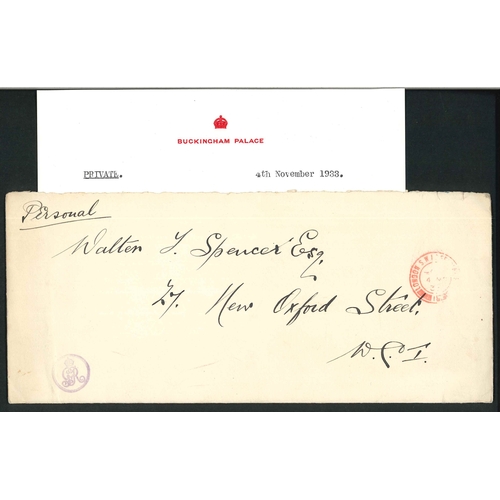 BUCKINGHAM PALACE
PRIVATE. 4th November 1933.
Personal
Walter J. Spencer Esq.
27. New Oxford Street.
W.C.I.
LONDON S.W.